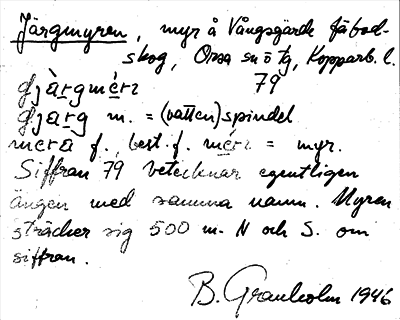 Järgmyren, myr å Vångsgärde fäbod-
skog, Orsa sn ö tg, Kopparb. l.
gjàrgmérɪ 79
gjarg m. = (vatten)spindel
mɛra f., best. f. mérɪ = myr.
Siffran 79 betecknar egentligen
ängen med samma namn. Myren
sträcker sig 500 m. N och S. om
siffran.
B. Granholm 1946